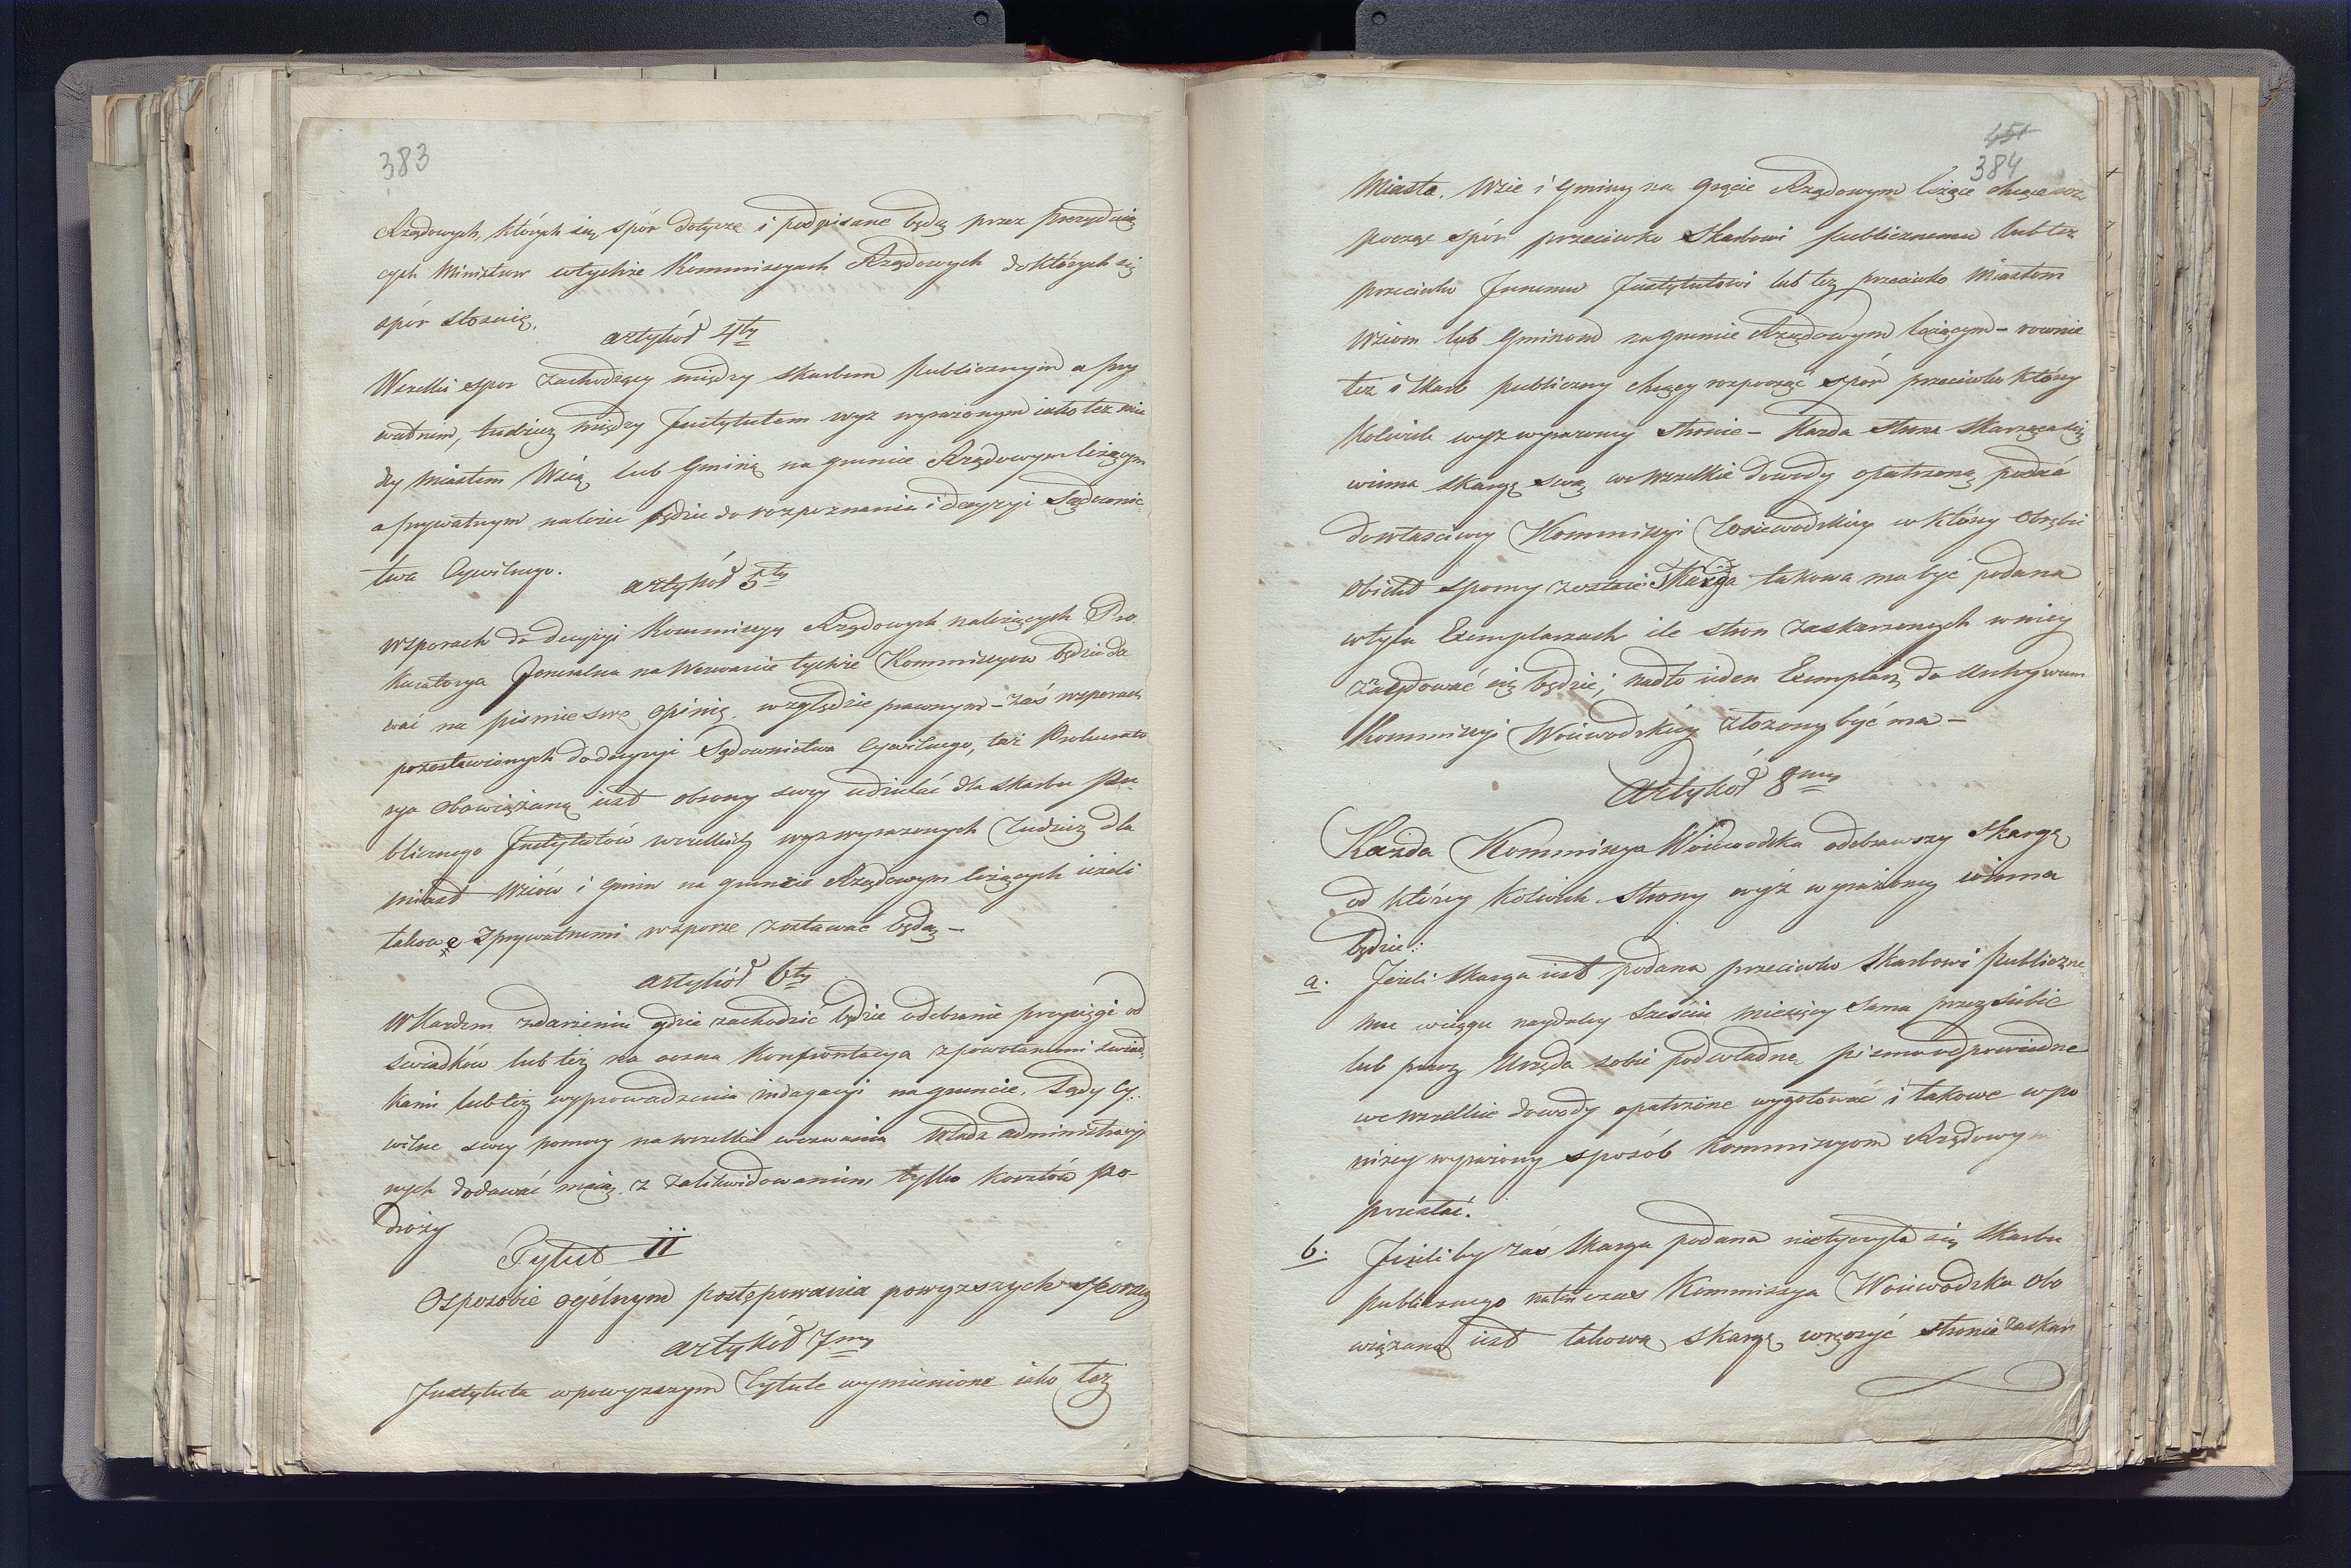 383
Rządowych, których się spór dotycze i podpisane będą przez prezyduią
cych Ministrow wtychże Kommissyach Rządowych doktórych się
spór stosuie.
artykół 4ty
Wszelki spor zachodzący między skarbem publicznym a pry
watnem, tudzież między Jnstytutem wyz wyrażonym iako też mię
dzy Miastem Wsią lub Gminą na gruncie Rządowym leżącym
a prywatnym należeć będzie do rozpoznania i decyzyi Sądownic
twa Cywilnego.
artykół 5ty
Wsporach do decyzyi Kommissyy Rządowych należących Pro
kuratorya Jeneralna na Wezwanie tychże Kommissyow będzie da
wać na pismie swe opinię względzie prawnym – zaś wsporach
pozostawionych dodecyzyi Sądownictwa Cywilnego, taż Prokurato
rya obowiązaną iest obrony swey udzielać dla skarbu Pu
blicznego Jnstytutów wszelkich wyz wyrazonych tudzież dla
miast Wsiów i gmin na gruncie Rządowym leżących ieżeli
takowe zprywatnemi wsporze zostawać będą –
artykół 6ty
W Kazdem zdarzeniu gdzie zachodzić będzie odebranie przysięgi od
swiadków lub też na oczna Konfrontacya zpowołanemi swiad
kami lub też wyprowadzenia indagacyi na gruncie, Sądy Cy
wilne swey pomocy na wszelkie wezwania Władz administracyi
nych dodawać maią, z zalikwidowaniem tylko kosztów po-
droży
Tytuł II
Osposobie ogólnym postępowania powyzszych sporow
artykół 7my
Jnstytuta wpowyzszym Tytule wymienione iako też
451
384
Miasta, Wsie i Gminy na grącie Rządowym leżące chcące roz
począc spór przeciwko Skarbowi publicznemu lub tez
przeciwko Jnnemu Jnstytutowi lub też przeciwko Miastom
Wsiom lub Gminom na grunie Rządowym leżącym – rownie
też i Skarb publiczny chcący rozpocząc spór przeciwko który
kolwiek wyz wyrazoney stronie – Kazda strona Skarząca się
winna skargę swą we wszelkie dowody opatrzoną podać
dowłasciwey Kommissyi Woiewodzkiey w który obrębie
obiekt sporny zostaie Skarga takowa ma być podana
wtylu Exemplarzach ile stron zaskarzonych wniey
znaydować się będzie, nadto ieden Exemplarz do Archywum
Kommissyi Woiewodzkiey złozony być ma –
Artykół 8my
Kazda Kommissya Woiewodzka odebrawszy skargę
od którey kolwiek Strony wyż wyrażoney winna
będzie:
a. Jeżeli skarga iest podana przeciwko Skarbowi Publiczne
mu wciągu naydaley Szesciu miesięcy Sama przez siebie
lub przez Urzęda sobie podwładne, pismo odpowiedne
we wszelkie dowody opatrzone wygotować i takowe wpo
niżey wyrażony sposób Kommissyom Rządowym
przesłać.
b. Jeżeliby zaś Skarga podana nietyczyła się Skarbu
publicznego natenczas Kommissya Woiewodzka obo
wiązaną iest takową skargę wręczyć stronie zaskar